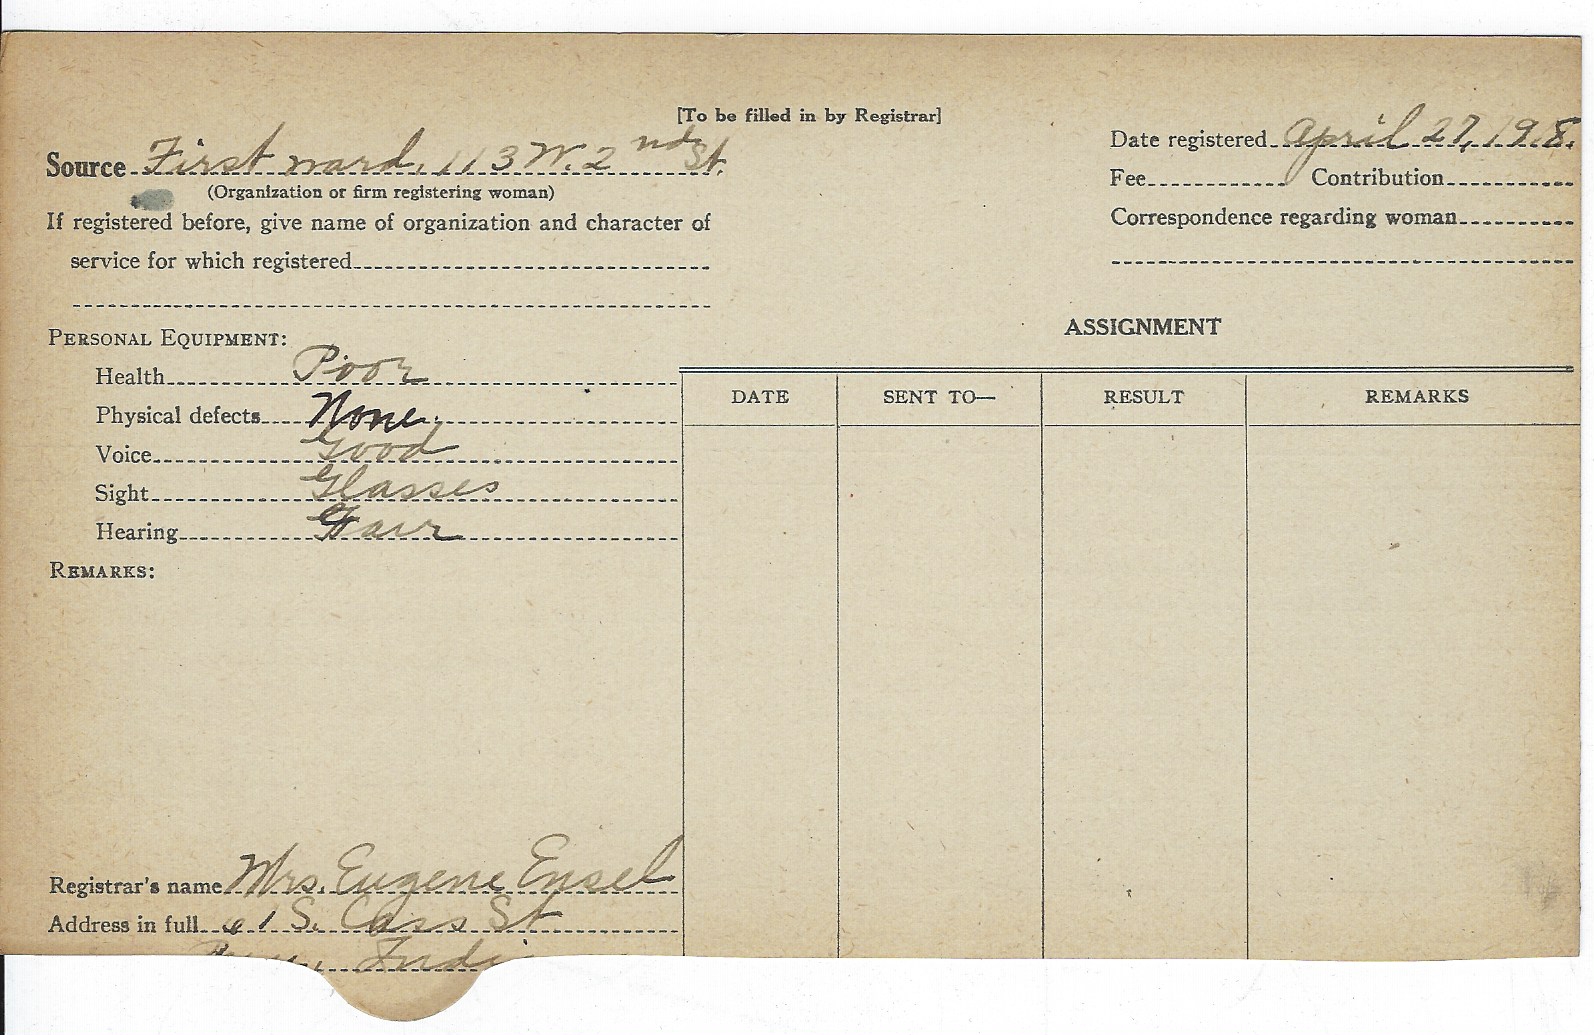 [To be filled in by Registrar]
Source First ward, 113 W. 2nd St.
(Organization or firm registering woman)
If registered before, give name of organization and character of
service for which registered
Date registered April 27, 1918.
Fee Contribution
Correspondence regarding woman
PERSONAL EQUIPMENT:
Health Poor
Physical defects None.
Voice Good
Sight Glasses
Hearing Fair
REMARKS:
ASSIGNMENT
DATE SENT TO— RESULT REMARKS
Registrar's name Mrs. Eugene Ensel
Address in full 61 S. Cass St
Indi